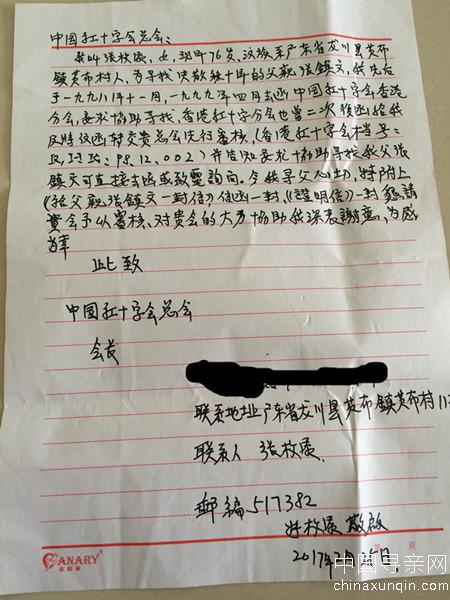 中国红十字会总会：
我叫张枚展，男，现年76岁，汉族系广东省龙川县黄布
镇黄布村人，为寻找失散数十年的父亲张镇文，我先后
于一九九八年十一月，一九九九年四月去函中国红十字会香港
分会，要求协助寻找，香港红十字分会也曾二次复函给我
及将该函转交贵总会先行审核，（香港红十字会档号：
98.12.002）并告知要求协助寻找我父张
镇文可直接去函或致電詢问。今我寻父心切，特附上
《致父親张鎮文一封信》信函一封，《證明信》一封懇請
貴会予以審核、对贵会的大力協助我深表謝意，为感
为幸
此致
中国红十字会总会
会长
联系地址 广东省龙川县黄布鎮黄布村
联系人 张枚展
郵编 517382
张枚展 敬啟
2017年 月 日
頁
CANARY
中国寻亲网
chinaxunqin.com